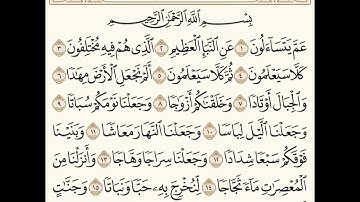 بِسْمِ ٱللَّهِ ٱلرَّحْمَٰنِ ٱلرَّحِيمِ
عَمَّ يَتَسَآءَلُونَ ١ عَنِ ٱلنَّبَإِ ٱلْعَظِيمِ ٢ ٱلَّذِى هُمْ فِيهِ مُخْتَلِفُونَ ٣
كَلَّا سَيَعْلَمُونَ ٤ ثُمَّ كَلَّا سَيَعْلَمُونَ ٥ أَلَمْ نَجْعَلِ ٱلْأَرْضَ مِهَٰدًا ٦
وَٱلْجِبَالَ أَوْتَادًا ٧ وَخَلَقْنَٰكُمْ أَزْوَٰجًا ٨ وَجَعَلْنَا نَوْمَكُمْ سُبَاتًا ٩
وَجَعَلْنَا ٱلَّيْلَ لِبَاسًا ١٠ وَجَعَلْنَا ٱلنَّهَارَ مَعَاشًا ١١ وَبَنَيْنَا
فَوْقَكُمْ سَبْعًا شِدَادًا ١٢ وَجَعَلْنَا سِرَاجًا وَهَّاجًا ١٣ وَأَنزَلْنَا مِنَ
ٱلْمُعْصِرَٰتِ مَآءً ثَجَّاجًا ١٤ لِّنُخْرِجَ بِهِۦ حَبًّا وَنَبَاتًا ١٥ وَجَنَّٰتٍ